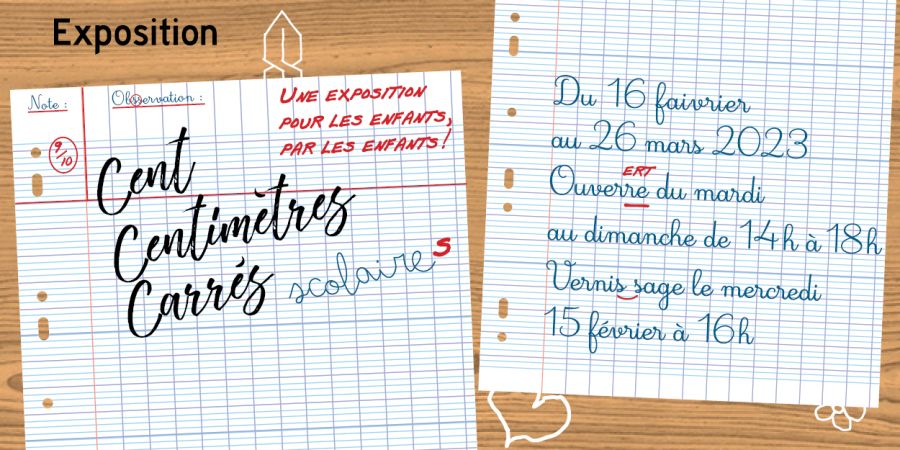 Exposition
Note :
Observation :
UNE EXPOSITION
POUR LES ENFANTS,
PAR LES ENFANTS !
9/10
Cent
Centimètres
Carrés scolaires
Du 16 faivrier
au 26 mars 2023
ERT
Ouverre du mardi
au dimanche de 14h à 18h
Vernis sage le mercredi
15 février à 16h